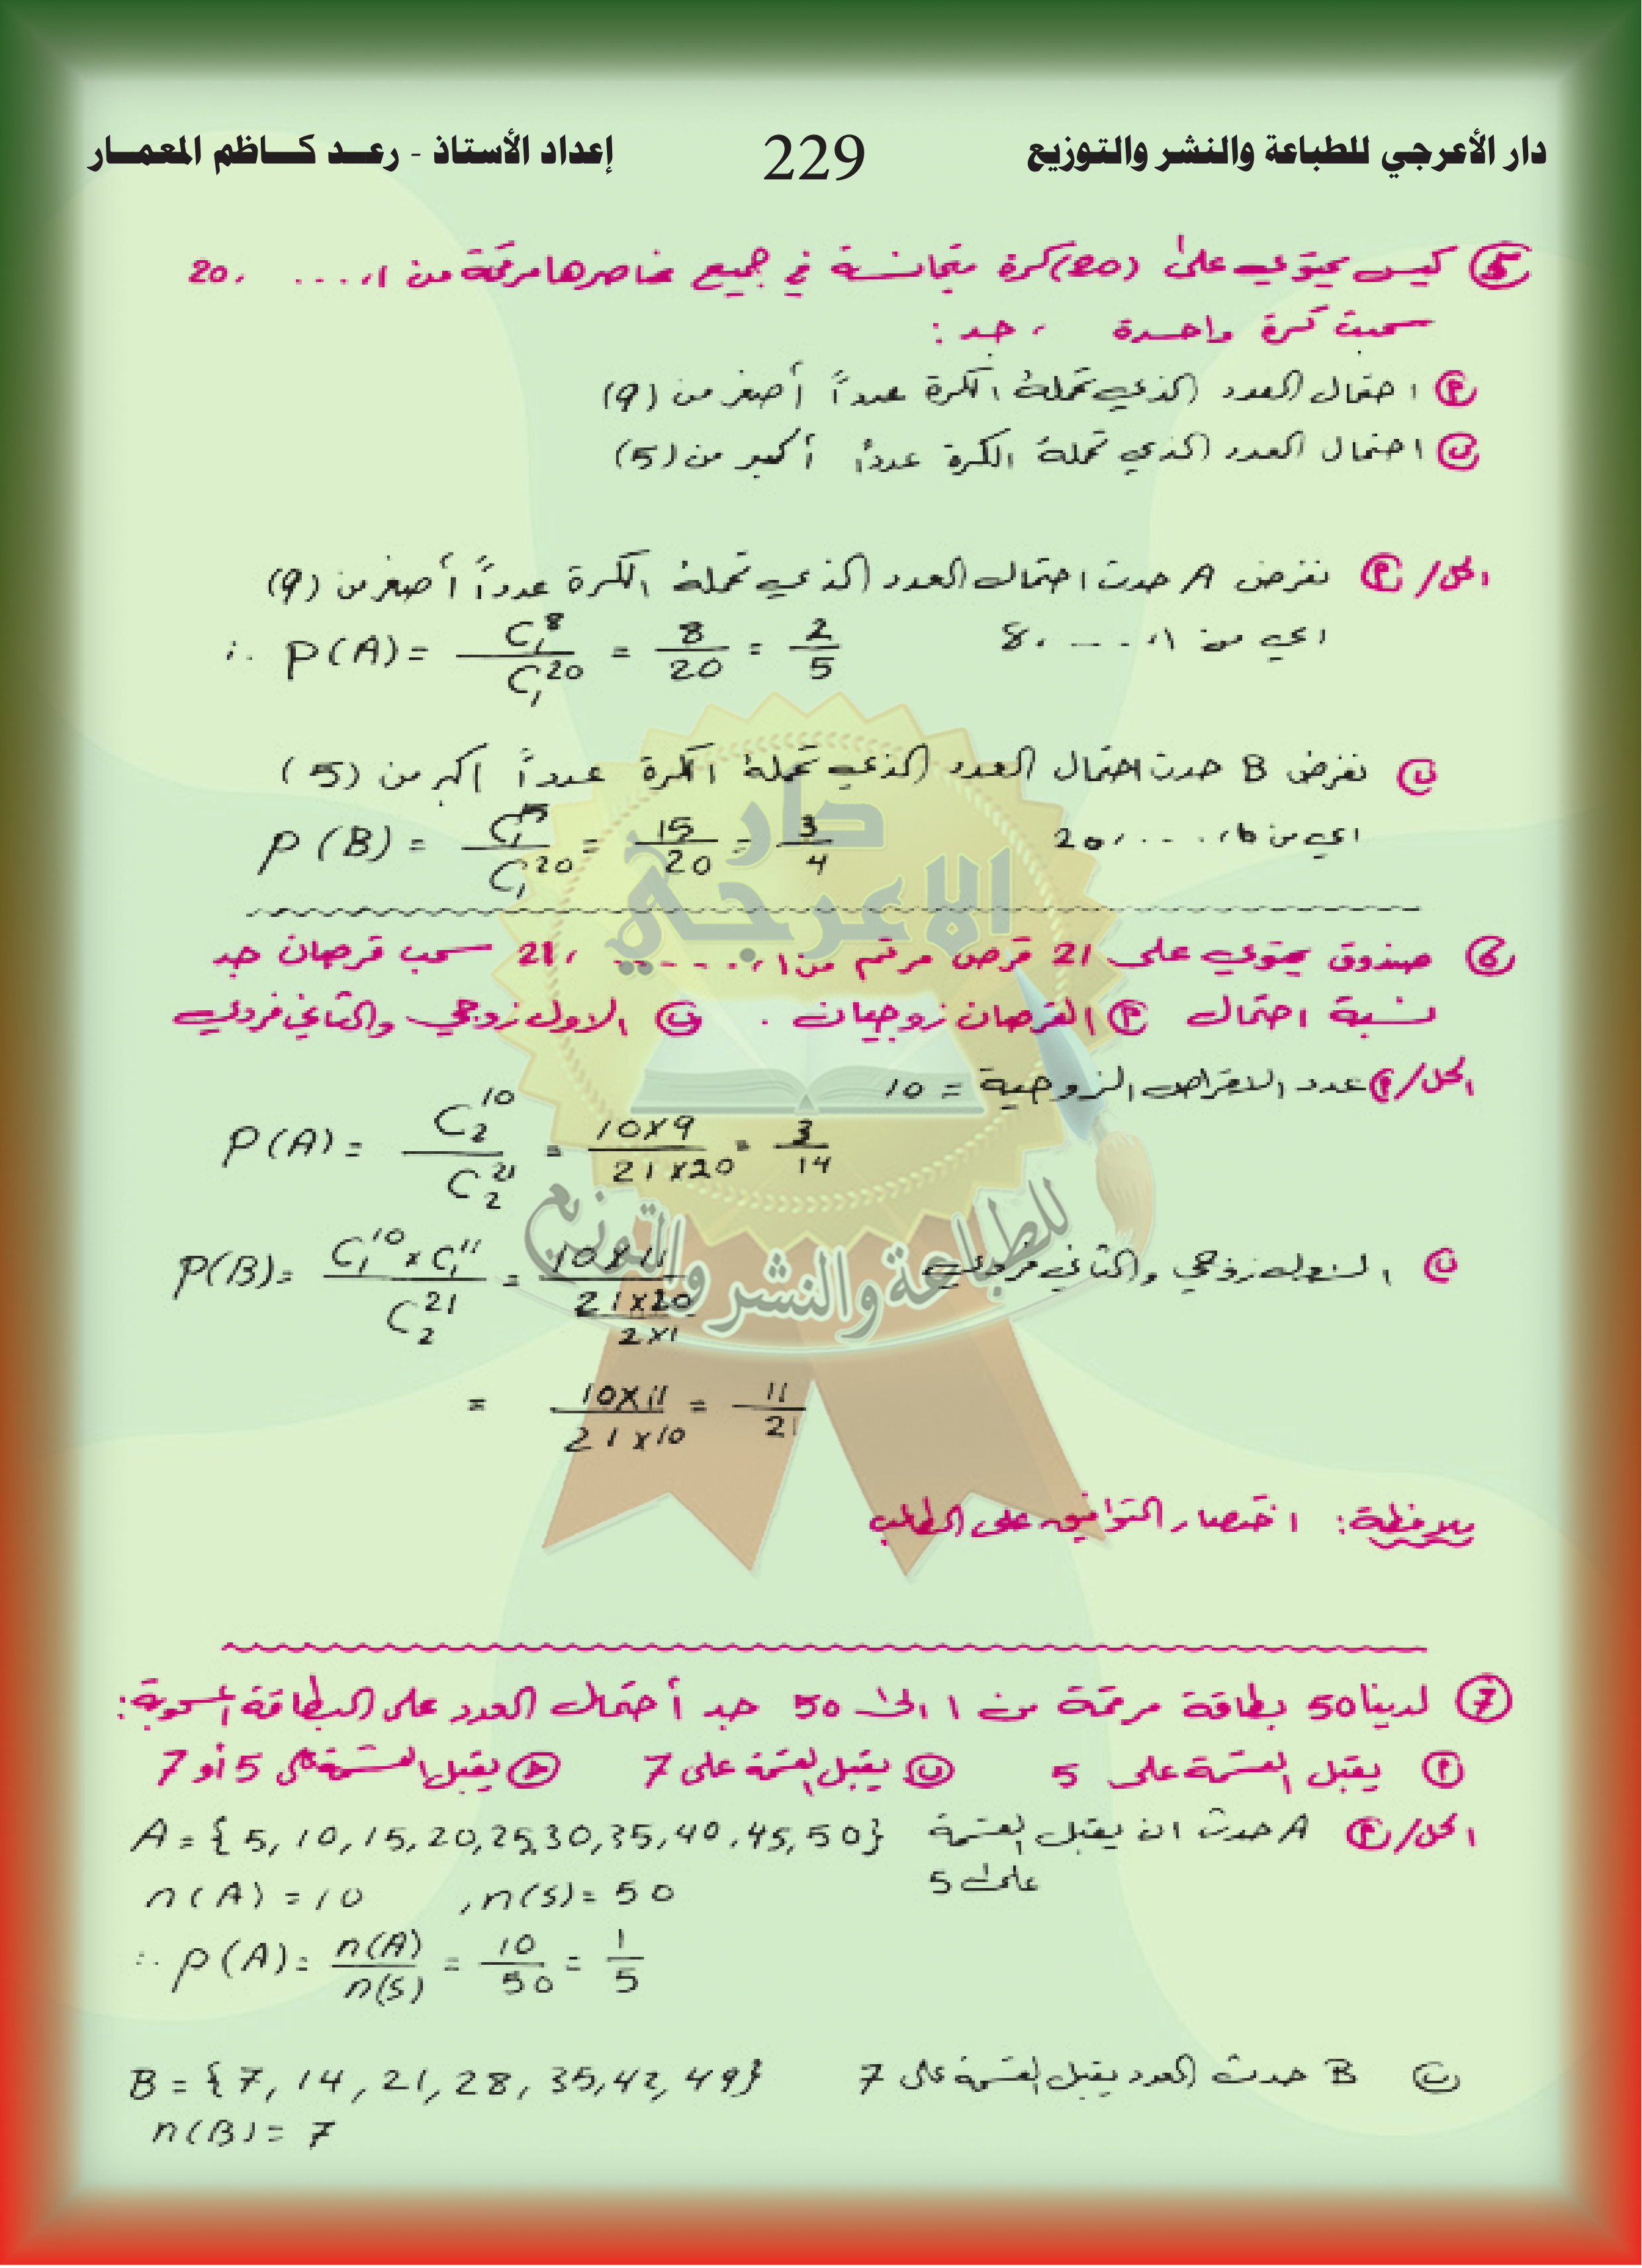 دار الأعرجي للطباعة والنشر والتوزيع 229 إعداد الأستاذ - رعـد كـاظم المعمـار
⑤ كيس يحتوي على (20) كرة متجانسة في جميع عناصرها مرقمة من 1، .... ،20
سحبت كرة واحدة ، جد :
(أ) احتمال العدد الذي تحمله الكرة عدداً أصغر من (9)
(ب) احتمال العدد الذي تحمله الكرة عدداً أكبر من (5)
الحل/ (أ) نفرض A حدث احتمال العدد الذي تحمله الكرة عدداً أصغر من (9)
اي من 1، .... ،8
∴ P(A) = C₁⁸ / C₁²⁰ = 8/20 = 2/5
(ب) نفرض B حدث احتمال العدد الذي تحمله الكرة عدداً اكبر من (5)
اي من 6، .... ،20
P(B) = C₁¹⁵ / C₁²⁰ = 15/20 = 3/4
⑥ صندوق يحتوي على 21 قرص مرقم من 1، ...... ،21 سحب قرصان جد
نسبة احتمال (أ) القرصان زوجيان . (ب) الاول زوجي والثاني فردي
الحل/ (أ) عدد الاقراص الزوجية = 10
P(A) = C₂¹⁰ / C₂²¹ = 10×9 / 21×20 = 3/14
(ب) الاول زوجي والثاني فردي
P(B) = C₁¹⁰ × C₁¹¹ / C₂²¹ = 10×11 / (21×20 / 2×1)
= 10×11 / 21×10 = 11/21
ملاحظة: اختصار التوافيق على الطالب
⑦ لدينا 50 بطاقة مرقمة من 1 الى 50 جد أحتمال العدد على البطاقة المسحوبة:
(أ) يقبل القسمة على 5 (ب) يقبل القسمة على 7 (ج) يقبل القسمة على 5 أو 7
الحل/ (أ) A حدث ان يقبل القسمة على 5
A = {5, 10, 15, 20, 25, 30, 35, 40, 45, 50}
n(A) = 10 , n(S) = 50
∴ P(A) = n(A)/n(S) = 10/50 = 1/5
(ب) B حدث العدد يقبل القسمة على 7
B = {7, 14, 21, 28, 35, 42, 49}
n(B) = 7
دار
الاعرجي
للطباعة والنشر والتوزيع